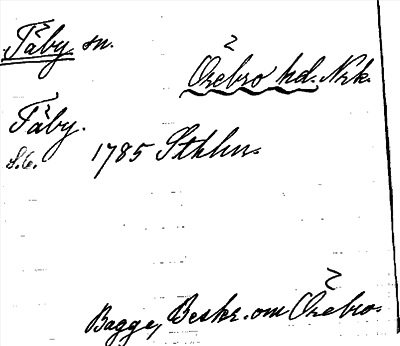 Täby sn.
Örebro hd. Nrk.
Täby.
S. 6. 1785 Sthlm.
Bagge, Beskr. om Örebro.